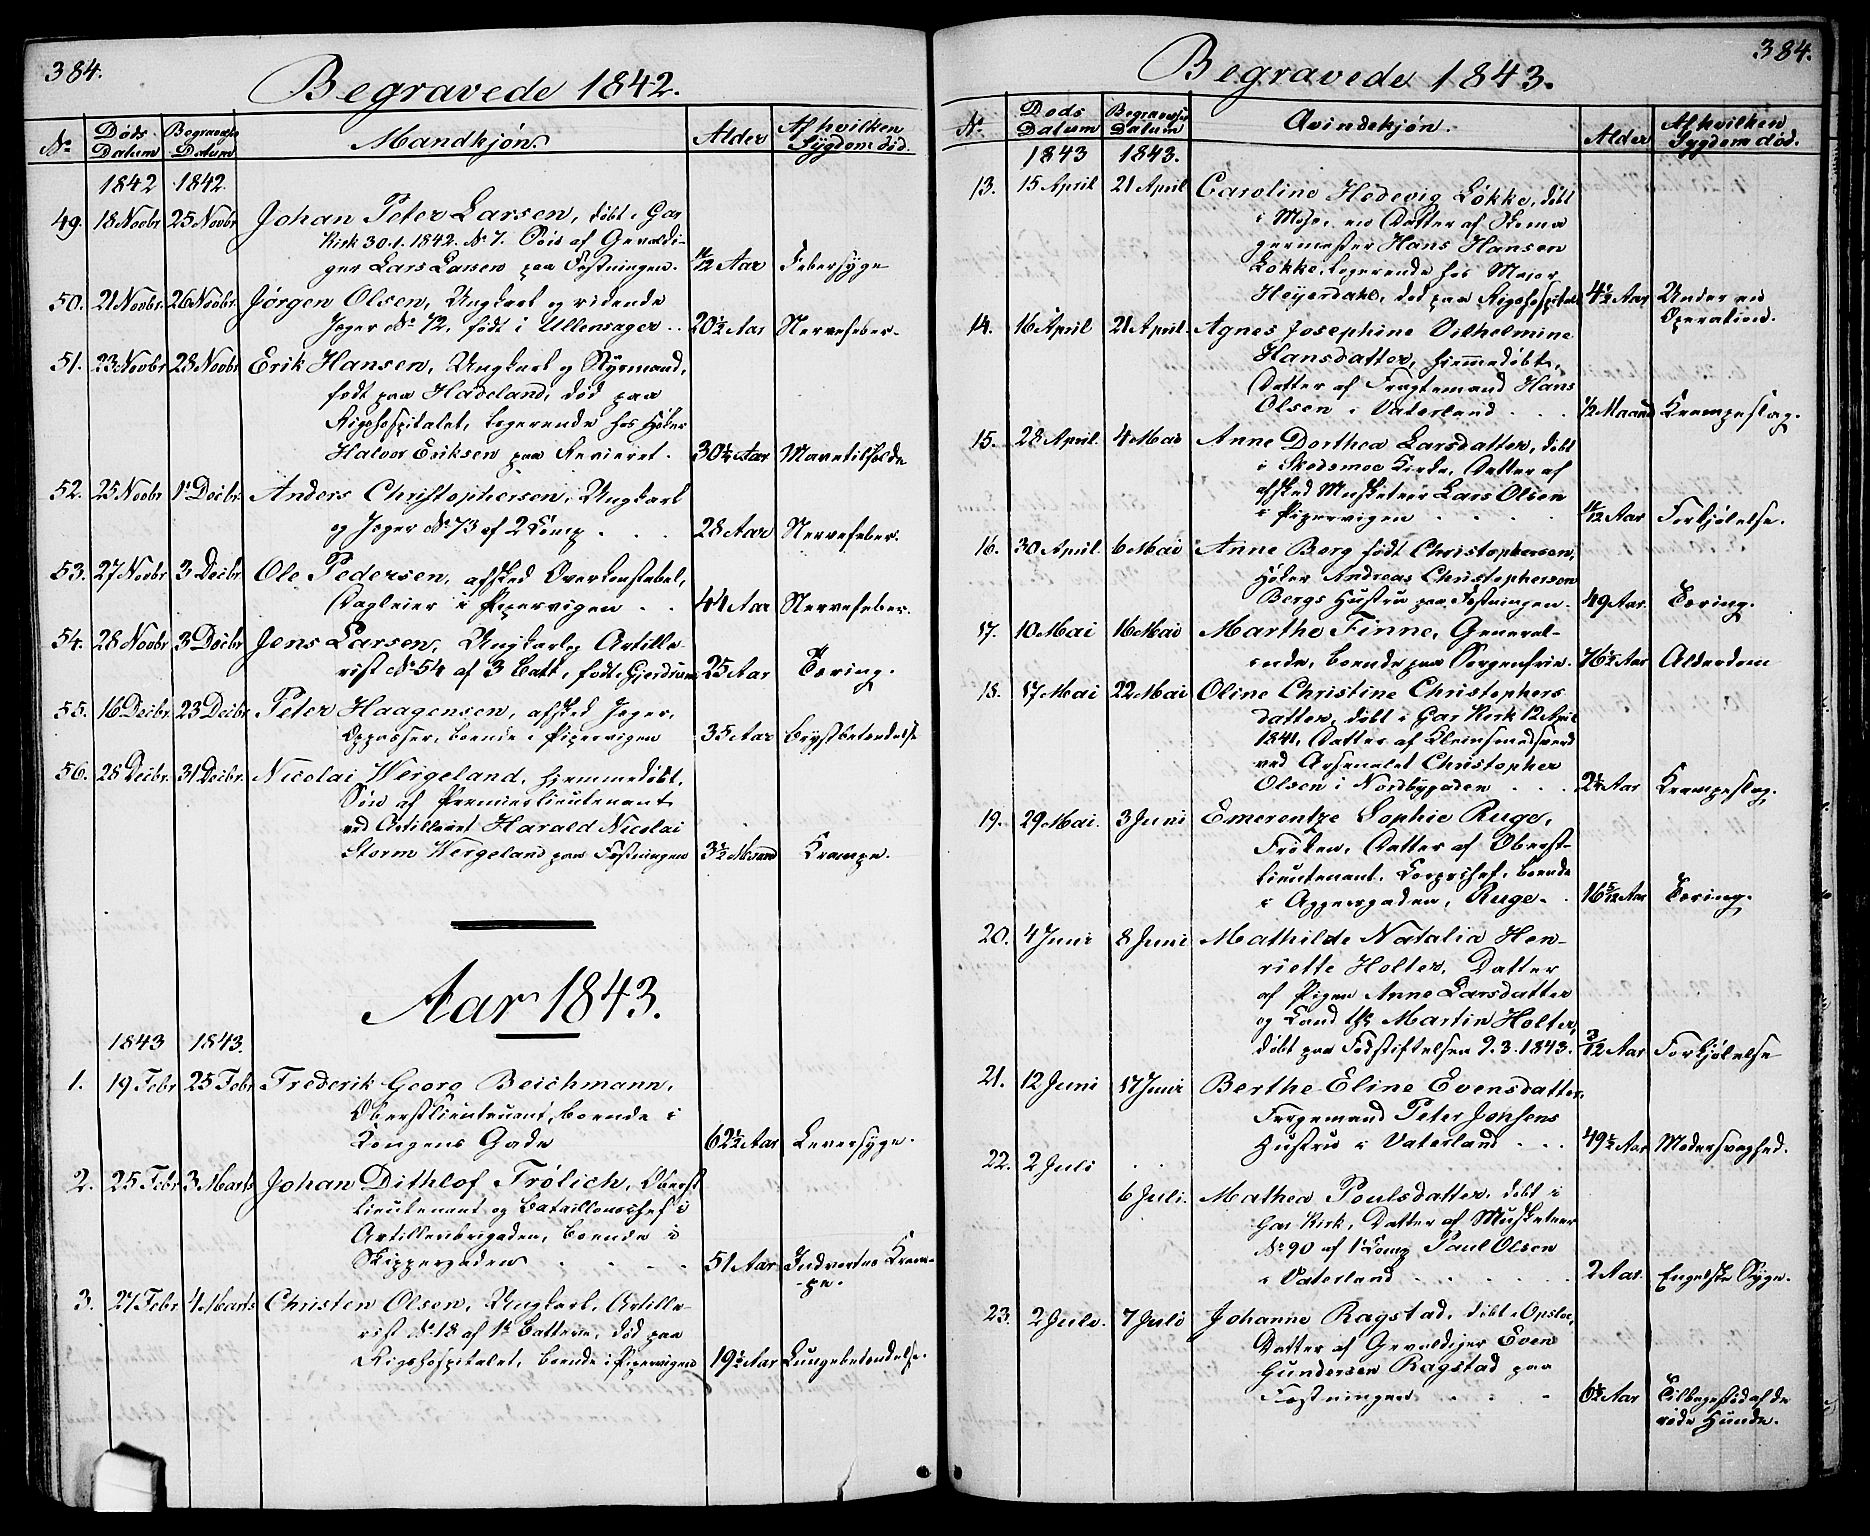 384.
Begravede 1842.
No Døds Datum Begravelse Datum Mandkjøn. Alder Af hvilken Sygdom død.
1842 1842.
49. 18 Novbr 25 Novbr Johan Peter Larsen, døbt i Gar
Kirk 30.1.1842. No 7. Søn af Gevaldi-
ger Lars Larsen paa Fæstningen. 11/12 Aar Febersyge
50. 21 Novbr. 26 Novbr. Jørgen Olsen, Ungkarl og ridende
Jæger No 72, født i Ullensager .. 20½ Aar Nervefeber.
51. 23 Novbr 28 Novbr Erik Hansen, Ungkarl og Styrmand,
født paa Hadeland, død paa
Rigshospitalet, logerende hos Høker
Halvor Eriksen paa Revieret. 30½ Aar Mavetilfælde
52. 25 Novbr 1 Decbr. Anders Christophersen, Ungkarl
og Jæger No 73 af 2 Comp . . . 28 Aar Nervefeber.
53. 27 Novbr 3 Decbr. Ole Pedersen, afsked Overkonstabel,
Dagleier i Pipervigen . . 44 Aar Nervefeber.
54. 28 Novbr 3 Decbr Jens Larsen, Ungkarl og Artille-
rist No 54 af 3 Batt, født i Gjerdrum 25 Aar Tæring.
55. 16 Decbr. 23 Decbr Peter Haagensen, afsked Jæger,
Oppasser, boende i Pipervigen 35 Aar Brystbetændelse
56. 28 Decbr. 31 Decbr. Nicolai Wergeland, hjemmedøbt,
Søn af Premierlieutenant
ved Artilleriet Harald Nicolai
Storm Wergeland paa Fæstningen 3½ Maaned Krampe.
Aar 1843.
1843 1843.
1. 19 Febr 25 Febr Frederik Georg Beichmann,
Oberstlieutenant, boende i
Kongens Gade 62½ Aar Leversyge.
2. 25 Febr 3 Marts Johan Dithlof Frølich, Oberst
lieutenant og Bataillonschef i
Artilleribrigaden, boende i
Skippergaden . . . . 51 Aar Indvortes Kram-
pe.
3. 27 Febr 4 Marts Christen Olsen, Ungkarl, Artille-
rist No 18 af 1ste Batterie, død paa
Rigshospitalet, boende i Pipervigen 19½ Aar Lungebetændelse.
384.
Begravede 1843.
No. Døds Datum Begravelse Datum Qvindekjøn. Alder Af hvilken Sygdom død.
1843 1843.
13. 15 April 21 April Caroline Hedevig Løkke, døbt
i Mose, en Datter af Skema
germester Hans Hansen
Løkke, logerende hos Major
Heyerdahl, død paa Rigshospitalet 4½ Aar Under en
Operation.
14. 16 April 21 April. Agnes Josephine Vilhelmine
Hansdatter, hjemmedøbt,
Datter af Fragtemand Hans
Olsen i Vaterland . . . ½ Maaned Krampeslag.
15. 28 April. 4 Mai Anne Dorthea Larsdatter, døbt
i Skedsmoe Kirke, Datter af
afsked Musketeer Lars Olsen
i Pipervigen . . . . 11/12 Aar Forkjølelse.
16. 30 April. 6 Mai Anne Berg født Christophersen,
Høker Andreas Christophersen
Bergs Hustru paa Fæstningen. 49 Aar. Tæring.
17. 10 Mai 16 Mai Marthe Finne, General-
inde, boende paa Sorgenfrie. 76½ Aar Alderdom
18. 17 Mai 22 Mai Oline Christine Christophers
datter, døbt i Gar Kirk 12 April
1841, Datter af Kleinsmedsvend
ved Arsenalet Christopher
Olsen i Nordbygaden . . . 2½ Aar Krampeslag.
19. 29 Mai. 3 Juni Emerentze Sophie Ruge,
Frøken, Datter af Oberst-
lieutenant, Corpschef, boende
i Aggersgaden, Ruge. . 16 5/12 Aar Tæring.
20. 4 Juni 8 Juni Mathilde Natalia Hen-
riette Holter, Datter
af Pigen Anne Larsdatter
og Cand. Martin Holter,
døbt paa Fødstiftelsen 9.3.1843. 3/12 Aar Forkjølelse
21. 12 Juni 17 Juni Berthe Eline Evensdatter,
Færgemand Peter Jonsens
Hustru i Vaterland . . . 49½ Aar Modersvaghed.
22. 2 Juli
6 Juli. Mathea Poulsdatter, døbt i
Gar Kirk, Datter af Musketeer
No 90 af 1 Comp Paul Olsen
i Vaterland . . . . . 2 Aar. Engelske Syge.
23. 2 Juli. 7 Juli Johanne Ragstad, døbt i Opsloe,
Datter af Gevaldiger Even
Gundersen Ragstad paa
Fæstningen . . . . 6½ Aar Tilbageslød af de
røde Hunde.